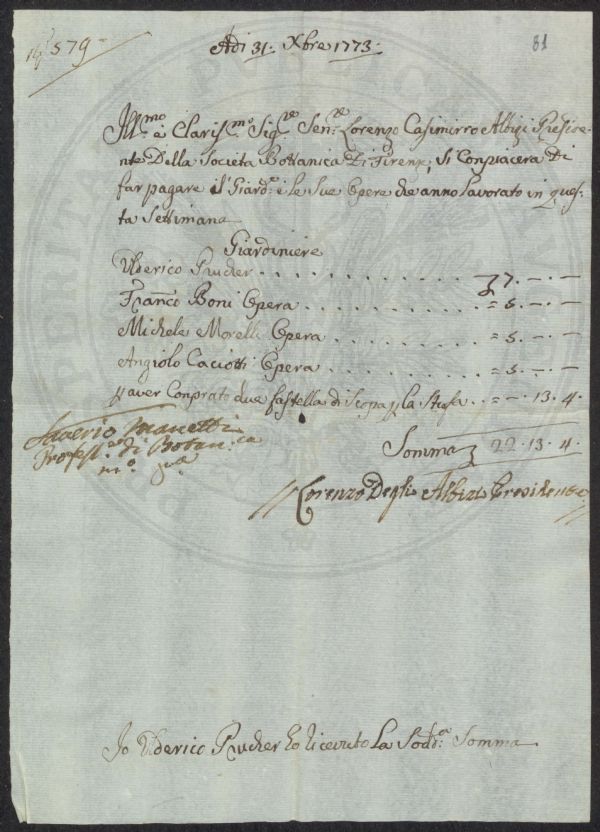 579
Adi 31. Xbre 1773.
81
Ill.mo e Claris.mo Sig.re Sen.re Lorenzo Casimirro Albizi Preside
nte Della Societa Bottanica Di Firenze, Si Conpiacera Di
far pagare il Giard.e e le Sue Opere che anno Lavorato in ques
ta Settimana
Giardiniere
Ulderico Prucher . . . . . . . . . . . 7. — . —
Franco Boni Opera . . . . . . . . . = 5. — . —
Michele Morelli Opera . . . . . . . . = 5. — . —
Angiolo Caciotti Opera . . . . . . . . = 5. — . —
aver Conprato due fastella di Scopa la Stufa . . = — . 13. 4.
Saverio Manetti
Profess.re di Botan.ca
m.o
Somma 22. 13. 4.
Lorenzo Degli Albizi Presidente
Io Ulderico Prucher ho ricevuto La Sodd.a Somma